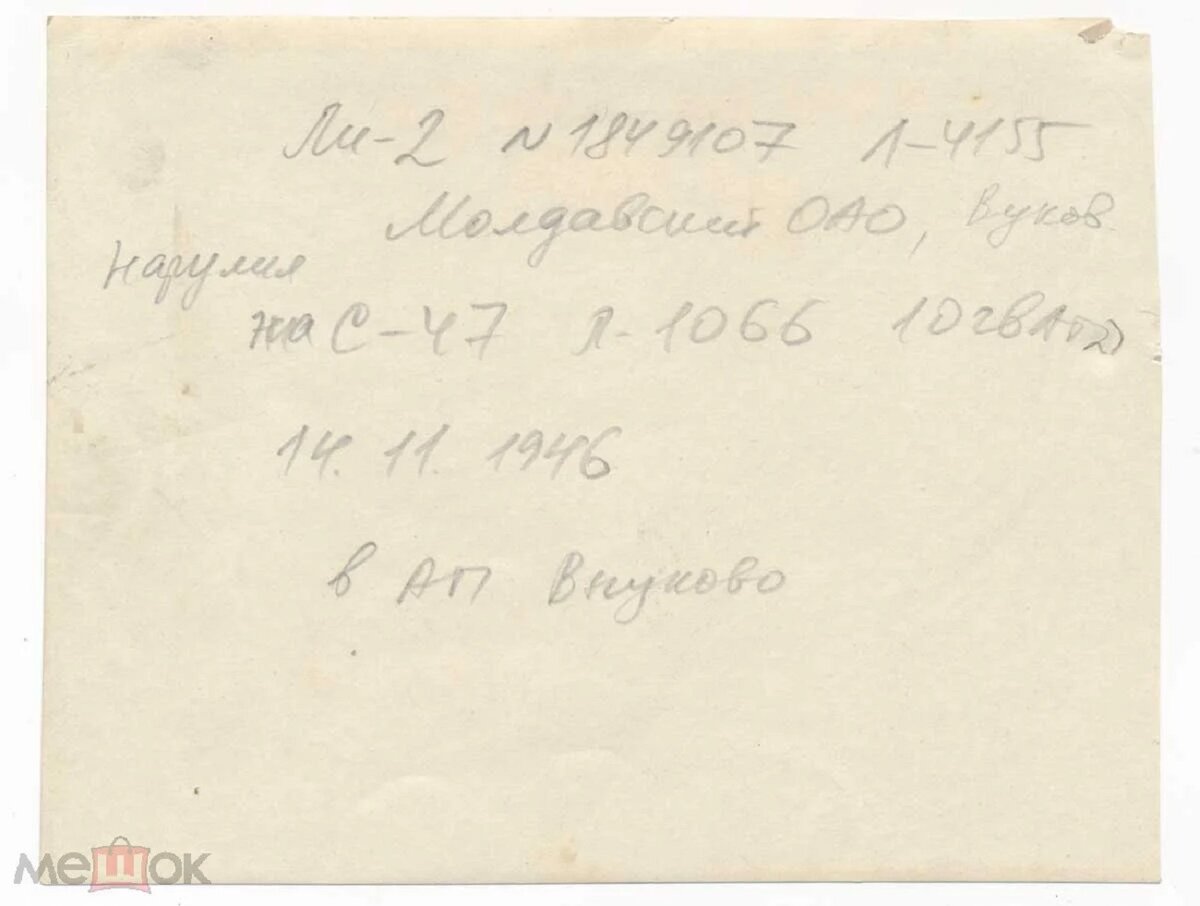 Ли-2 N 1849107 Л-4155
Молдавский ОАО, Вуков
на С-47 Л-1066 10гвАтд
14. 11. 1946
в АП Внуково
мешок